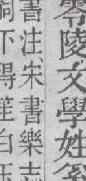 零陵文學姓奚
書注宋書樂志
下得笙白玉